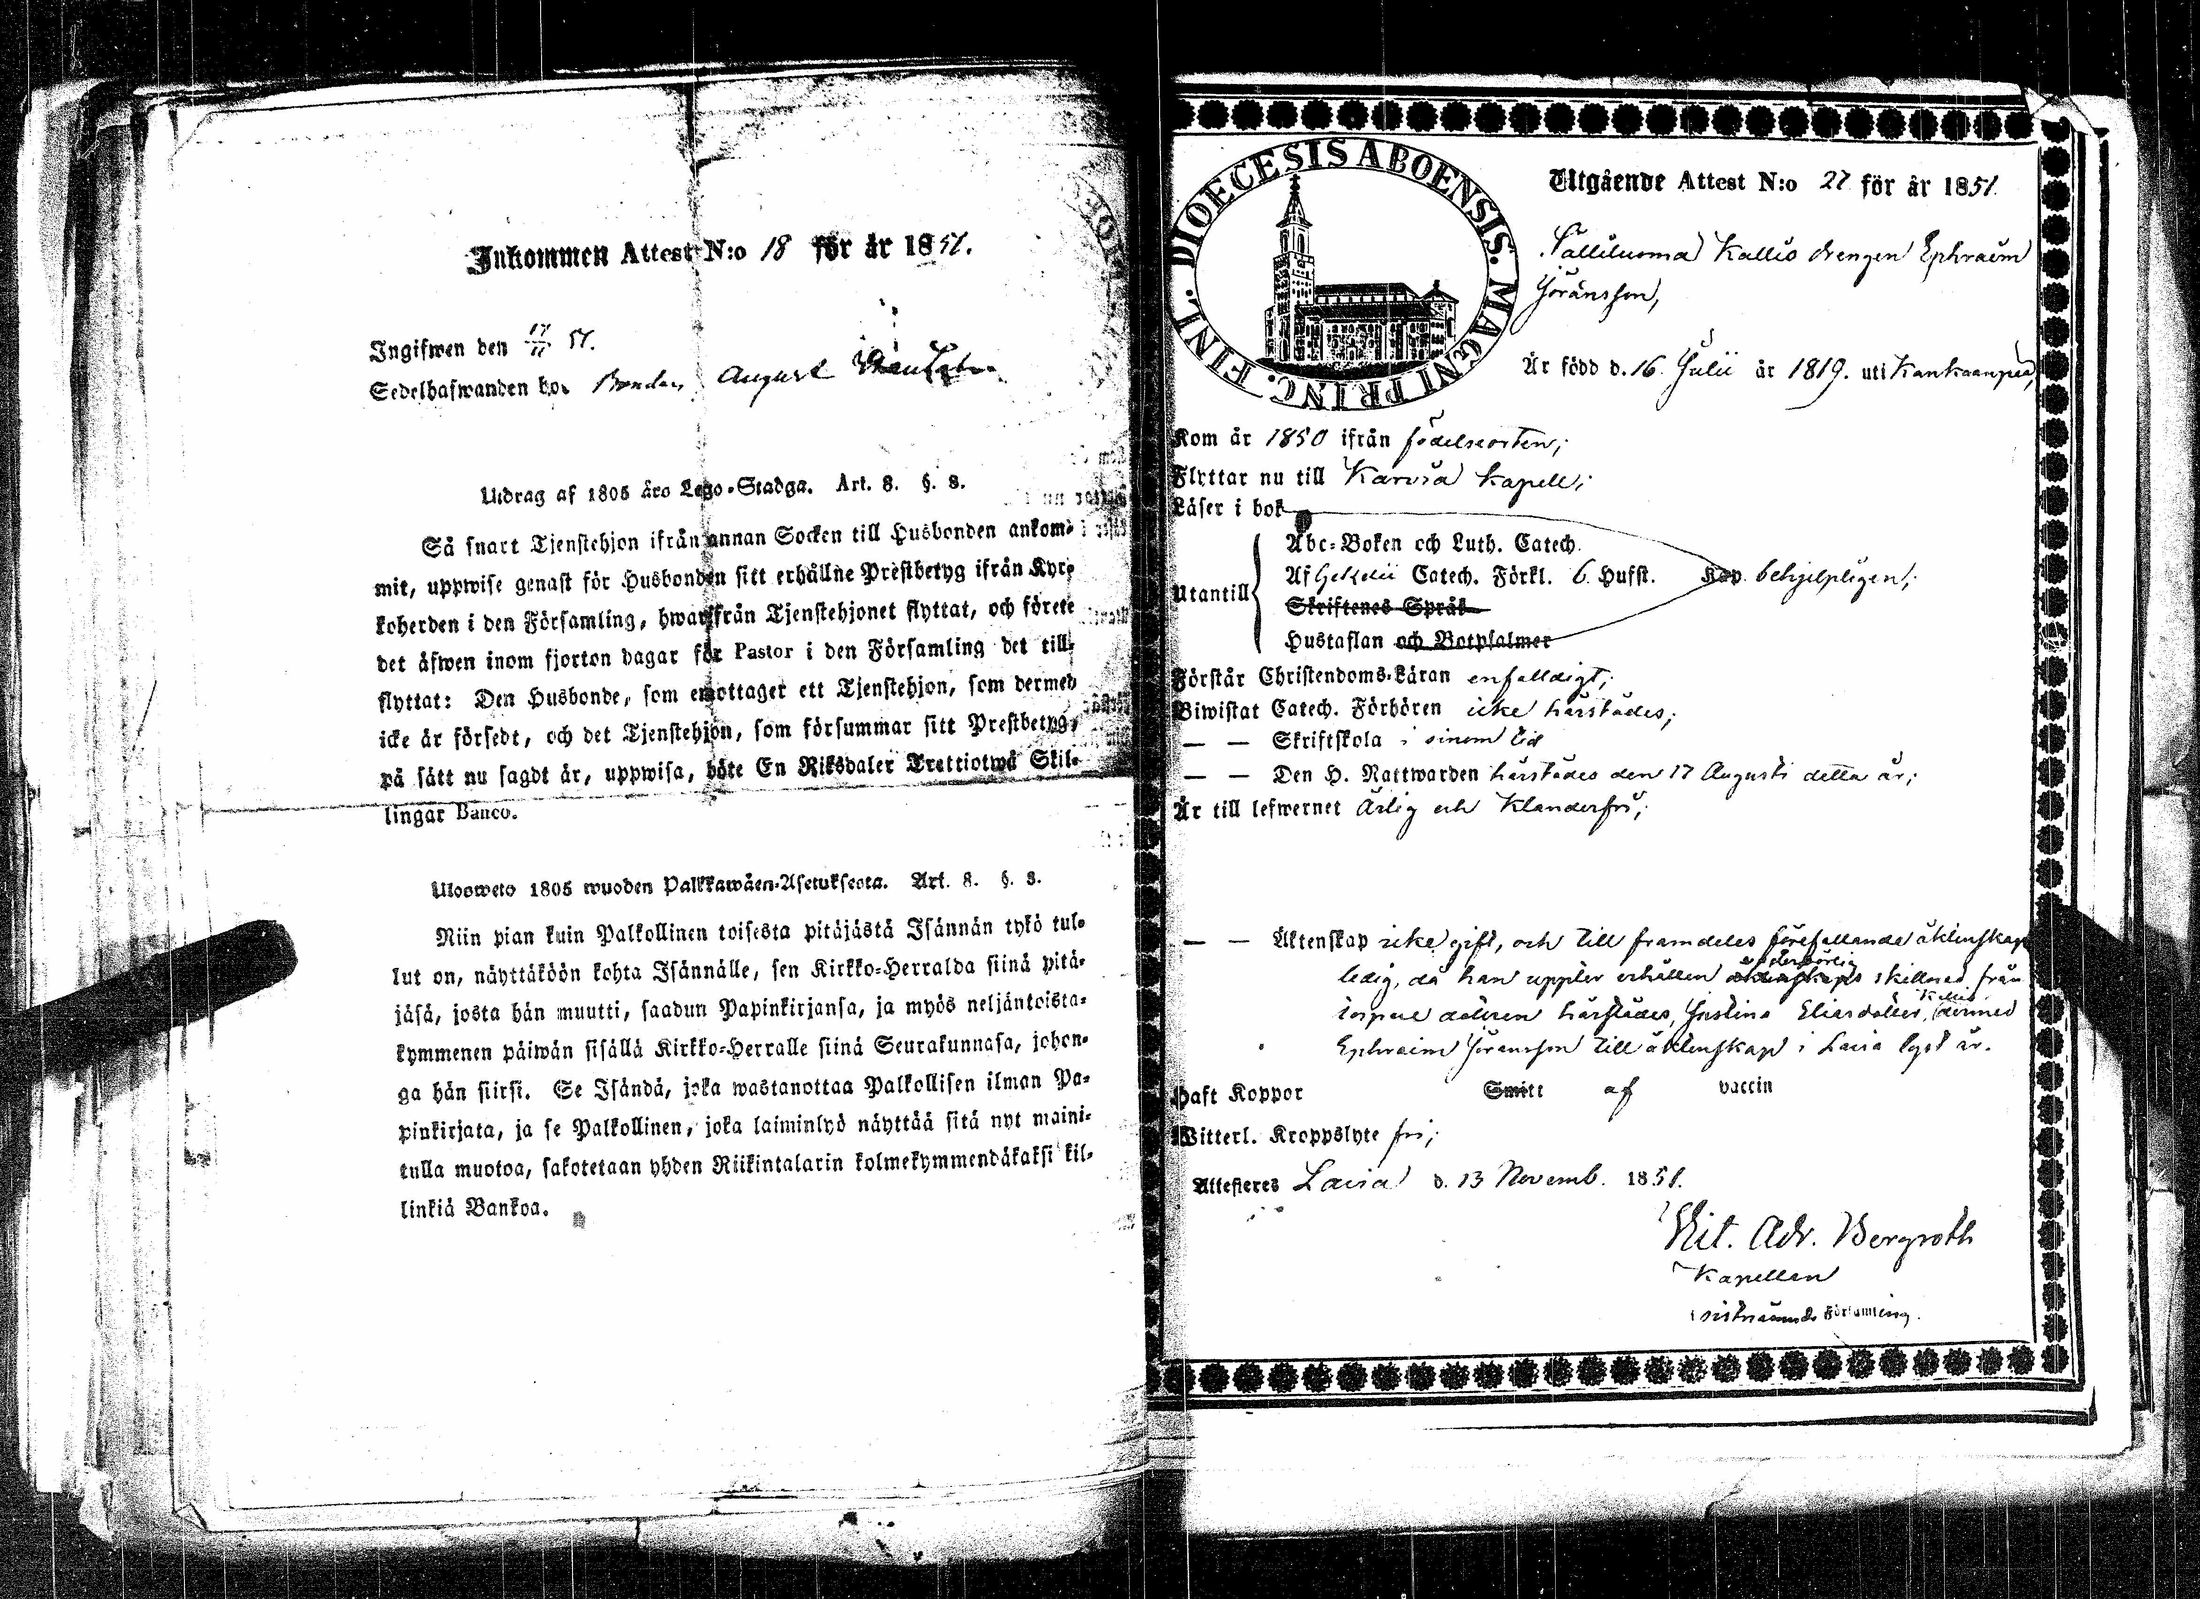 Inkommen Attest N:o 18 för år 1851.
Ingifwen den 17/11 51.
Sedelhafwanden hos Bonden August
Utdrag af 1805 års Lego-Stadga. Art. 8. §. 8.
Så snart Tjenstehjon ifrån annan Socken till Husbonden ankom-
mit, uppwise genast för Husbonden sitt erhållne Prestbetyg ifrån Kyr-
koherden i den Församling, hwarifrån Tjenstehjonet flyttat, och förete
det äfwen inom fjorton dagar för Pastor i den Församling det till-
flyttat: Den Husbonde, som emottager ett Tjenstehjon, som dermed
icke är försedt, och det Tjenstehjon, som försummar sitt Prestbetyg,
på sätt nu sagdt är, uppwisa, böte En Riksdaler Trettiotwå Skil-
lingar Banco.
Ulosweto 1805 wuoden Palkkawäen-Asetuksesta. Art. 8. §. 8.
Niin pian kuin Palkollinen toisesta pitäjästä Isännän tykö tul-
lut on, näyttäköön kohta Isännälle, sen Kirkko-Herralda siinä pitä-
jäsä, josta hän muutti, saadun Papinkirjansa, ja myös neljäntoista-
kymmenen päiwän sisällä Kirkko-Herralle siinä Seurakunnasa, johon-
ga hän siirsi. Se Isändä, joka wastanottaa Palkollisen ilman Pa-
pinkirjata, ja se Palkollinen, joka laiminlyö näyttää sitä nyt maini-
tulla muotoa, sakotetaan yhden Riikintalarin kolmekymmendäkaksi kil-
linkiä Bankoa.
DIOECESIS ABOENSIS. MAGNI PRINC. FINL.
Utgående Attest N:o 27 för år 1851.
Kallio drengen Ephraim
Göransson,
Är född d. 16 Julii år 1819. uti Kankaanpää,
Kom år 1850 ifrån födelseorten;
Flyttar nu till Karvia kapell;
Läser i bok
Utantill
Abc-Boken och Luth. Catech.
Af Gezelii Catech. Förkl. 6 Hufst. behjelpligen;
Skriftenes Språk
Hustaflan och Botpsalmer
Förstår Christendoms-Läran enfalldigt;
Biwistat Catech. Förhören icke härstädes;
— — Skriftskola i sinom tid
— — Den H. Nattwarden härstädes den 17 Augusti detta år;
Är till lefwernet Ärlig och Klanderfri;
— — Äktenskap icke gift, och till framdeles förefallande äktenskap
ledig, då han upplёr erhållen äktenskaps skillnad från
härstädes, Justina Eliasdotter, Kallio
Ephraim Göransson till äktenskap i Lavia lyst är.
Haft Koppor Smitt af vaccin
Witterl. Kroppslyte fri;
Attesteres Lavia d. 13 Novemb. 1851.
Vit. Adr. Bergroth
Kapellan
i sistnämnde Församling.